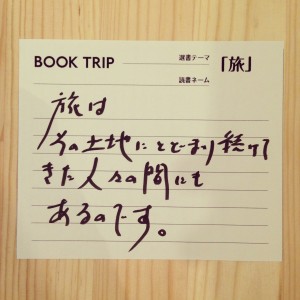 BOOK TRIP
選書テーマ 「旅」
読書ネーム
旅は
その土地にとどまり続けて
きた人々の間にも
あるのです。